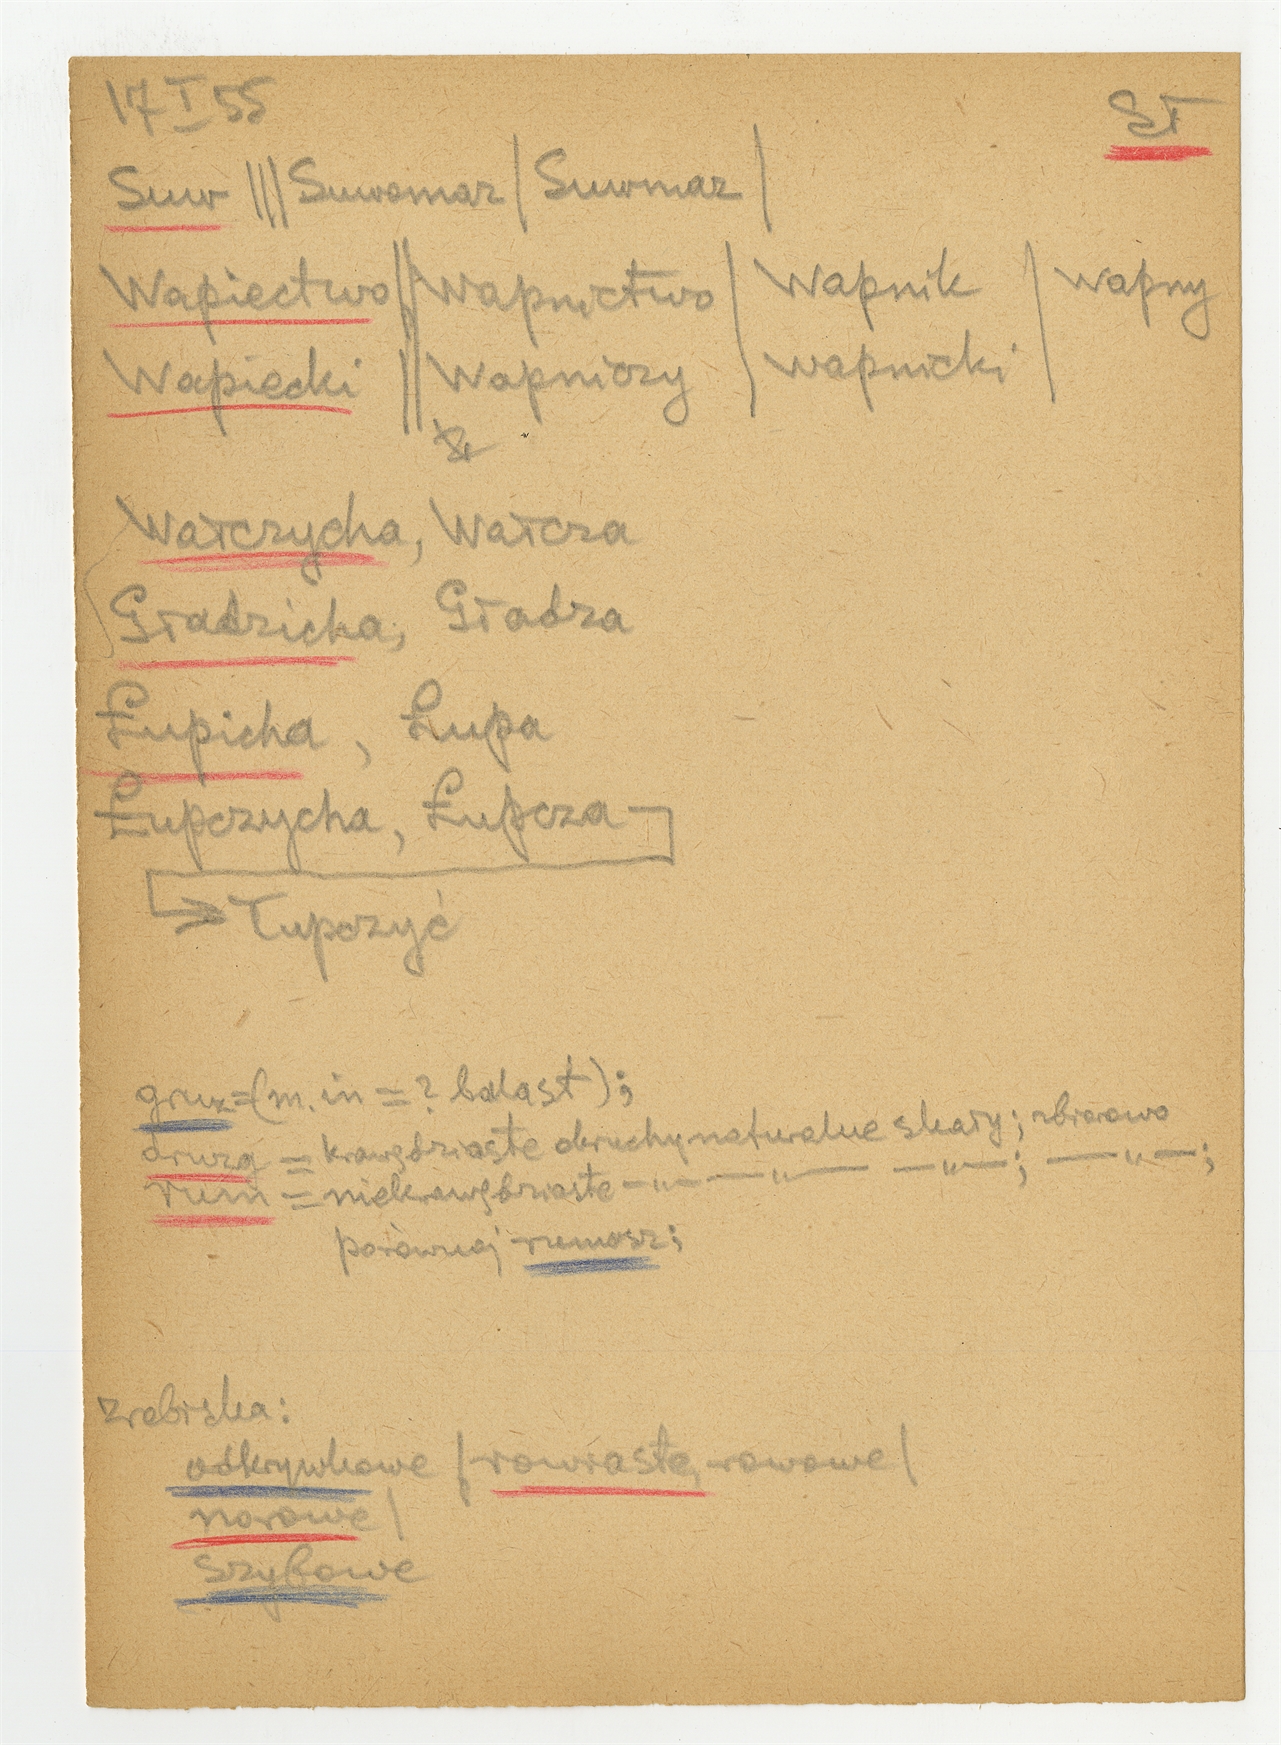 17 I 55
SŁ
Suw ||| Suwomaz | Suwmaz |
Wapiectwo || Wapnictwo | Wapnik | wapny
Wapiecki || Wapniczy | wapnicki |
Wałczycha, Wałcza
Gładzicha, Gładza
Łupicha, Łupa
Łupczycha, Łupcza
→ Łupczyć
gruz = (m. in = ? balast);
druzg = krawędziaste okruchy naturalne skały; zbiorowo
rum = niekrawędziaste —„— —„— —„—; —„—;
porównaj rumosz;
zrębiska:
odkrywkowe | rowiaste, rowowe |
norowe |
szybowe